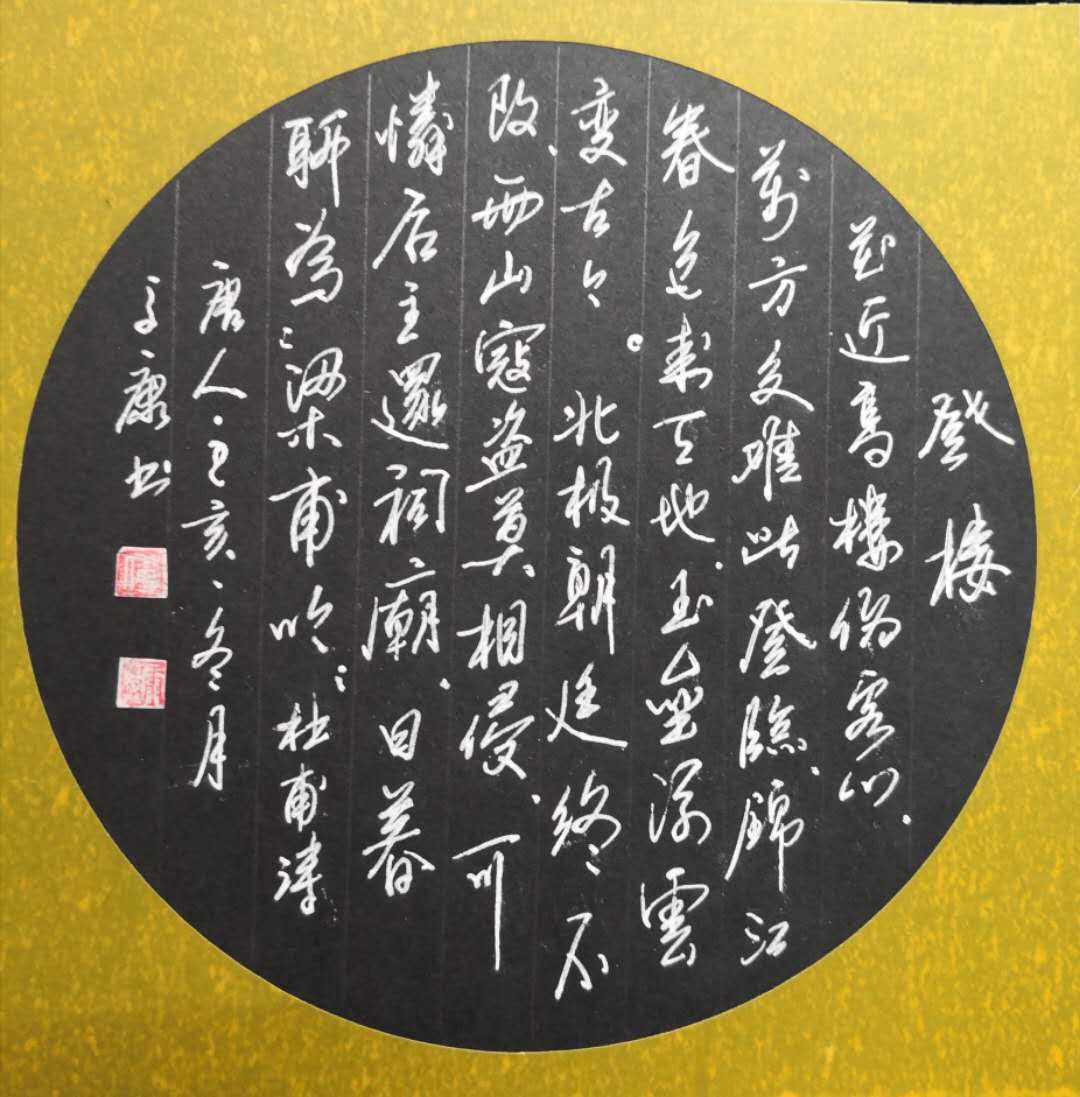 登楼
花近高楼傷客心.
萬方多难此登臨、錦江
春色来天地、玉壘浮雲
变古今。北极朝廷终不
改、西山寇盗莫相侵、可
憐后主還祠廟、日暮
聊為梁甫吟杜甫诗
唐人·己亥·冬月
康书